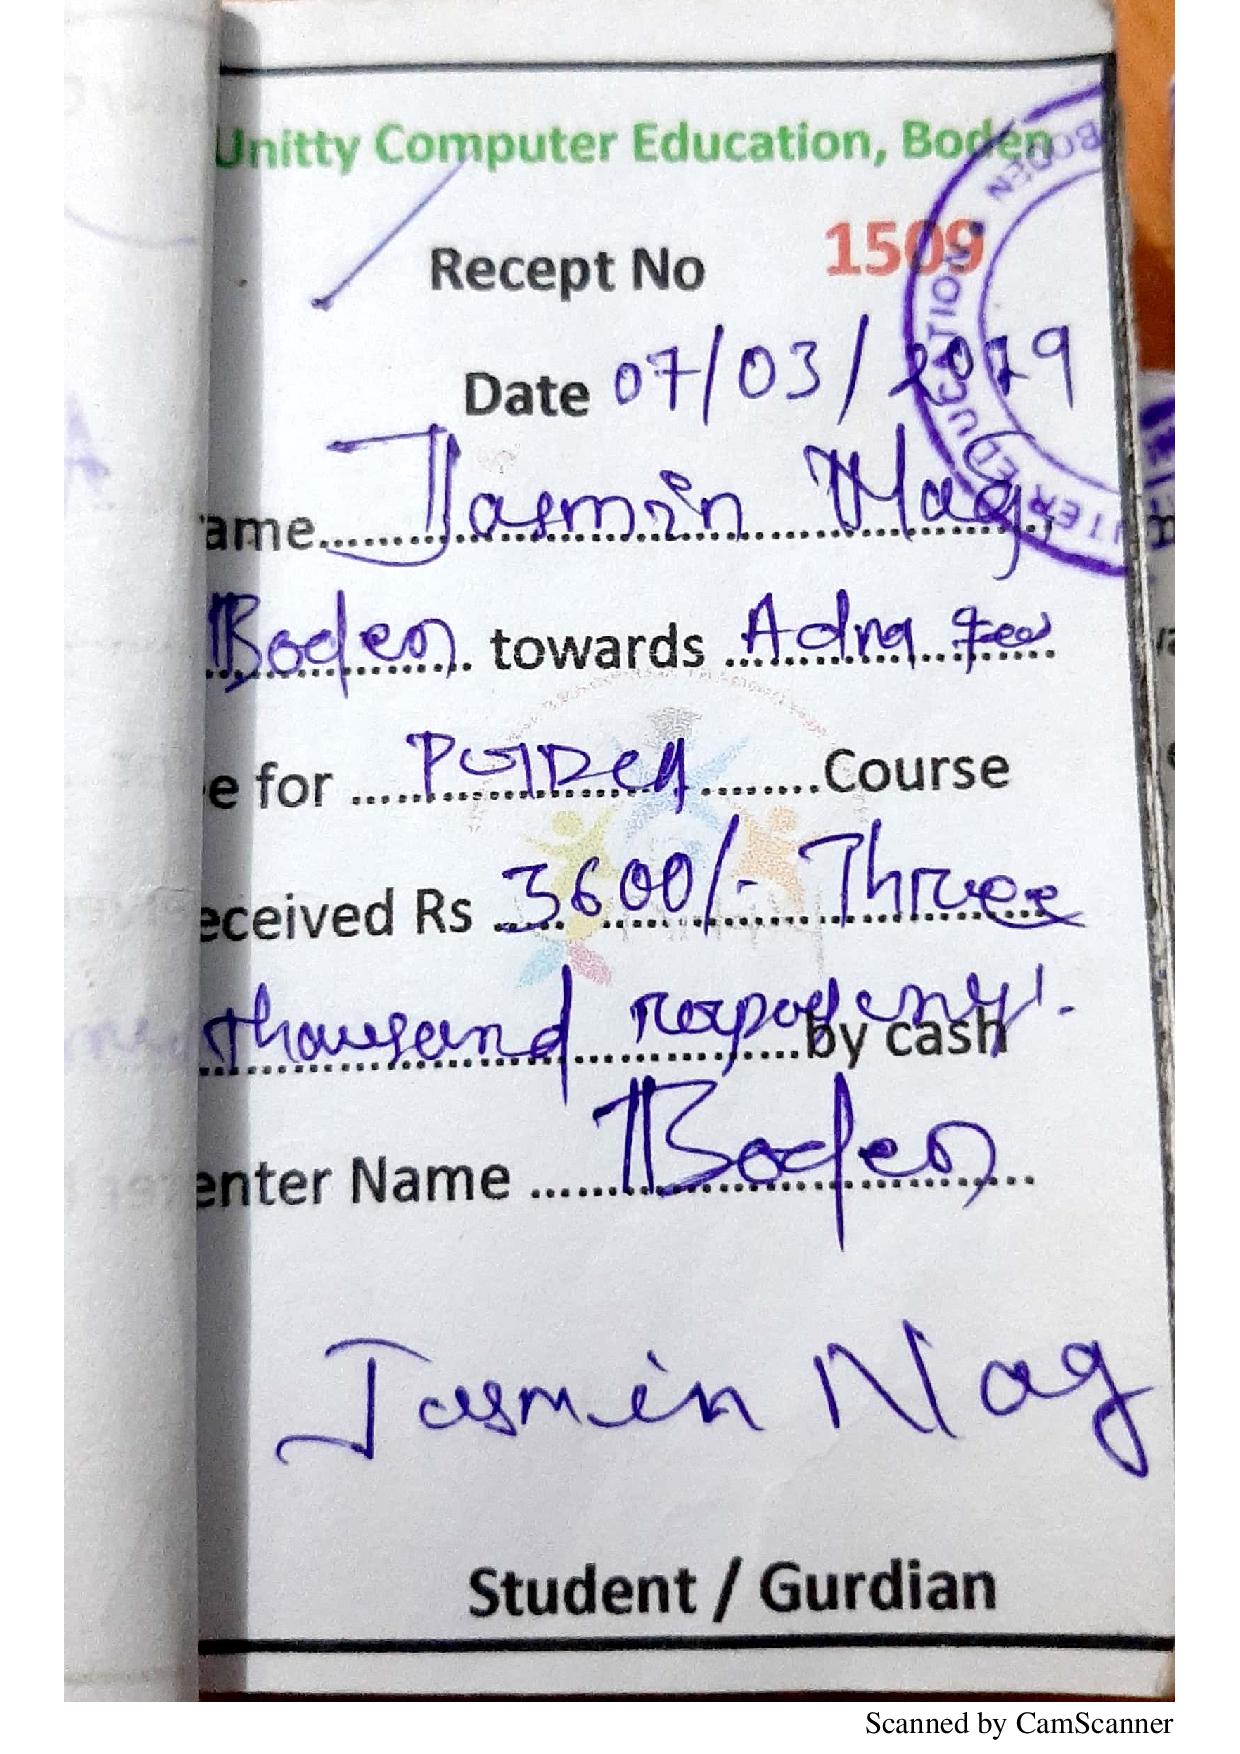 Unitty Computer Education, Boden
Recept No 1509
Date 07/03/2019
ame Jasmin Nag
Boden towards Adna fee
e for PGDCA Course
eceived Rs 3600/- Three
thousand by cash
enter Name Boden
Jasmin Nag
Student / Gurdian
Scanned by CamScanner